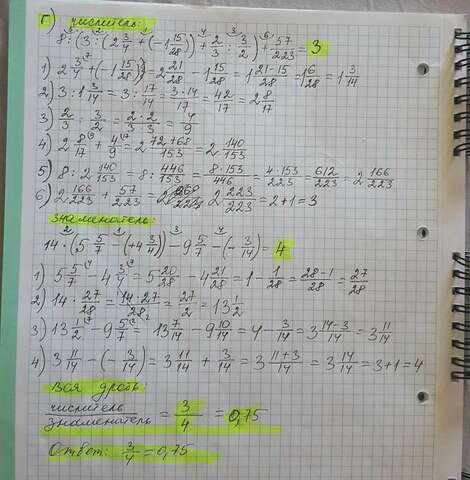 Г) числитель:
8 : (3 : (2 3/4 + (-1 15/28)) + 2/3 : 3/2) + 57/223 = 3
1) 2 3/4 + (-1 15/28) = 2 21/28 - 1 15/28 = 1 21-15/28 = 1 6/28 = 1 3/14
2) 3 : 1 3/14 = 3 : 17/14 = 3·14/17 = 42/17 = 2 8/17
3) 2/3 : 3/2 = 2·2/3·3 = 4/9
4) 2 8/17 + 4/9 = 2 72+68/153 = 2 140/153
5) 8 : 2 140/153 = 8 : 446/153 = 8·153/446 = 4·153/223 = 612/223 = 2 166/223
6) 2 166/223 + 57/223 = 2 223/223 = 2+1 = 3
знаменатель:
14 · (5 5/7 - (+4 3/4)) - 9 5/7 - (-3/14) = 4
1) 5 5/7 - 4 3/4 = 5 20/28 - 4 21/28 = 1 - 1/28 = 28-1/28 = 27/28
2) 14 · 27/28 = 14·27/28 = 27/2 = 13 1/2
3) 13 1/2 - 9 5/7 = 13 7/14 - 9 10/14 = 4 - 3/14 = 3 14-3/14 = 3 11/14
4) 3 11/14 - (-3/14) = 3 11/14 + 3/14 = 3 11+3/14 = 3 14/14 = 3+1 = 4
Вся дробь:
числитель/знаменатель = 3/4 = 0,75
Ответ: 3/4 = 0,75